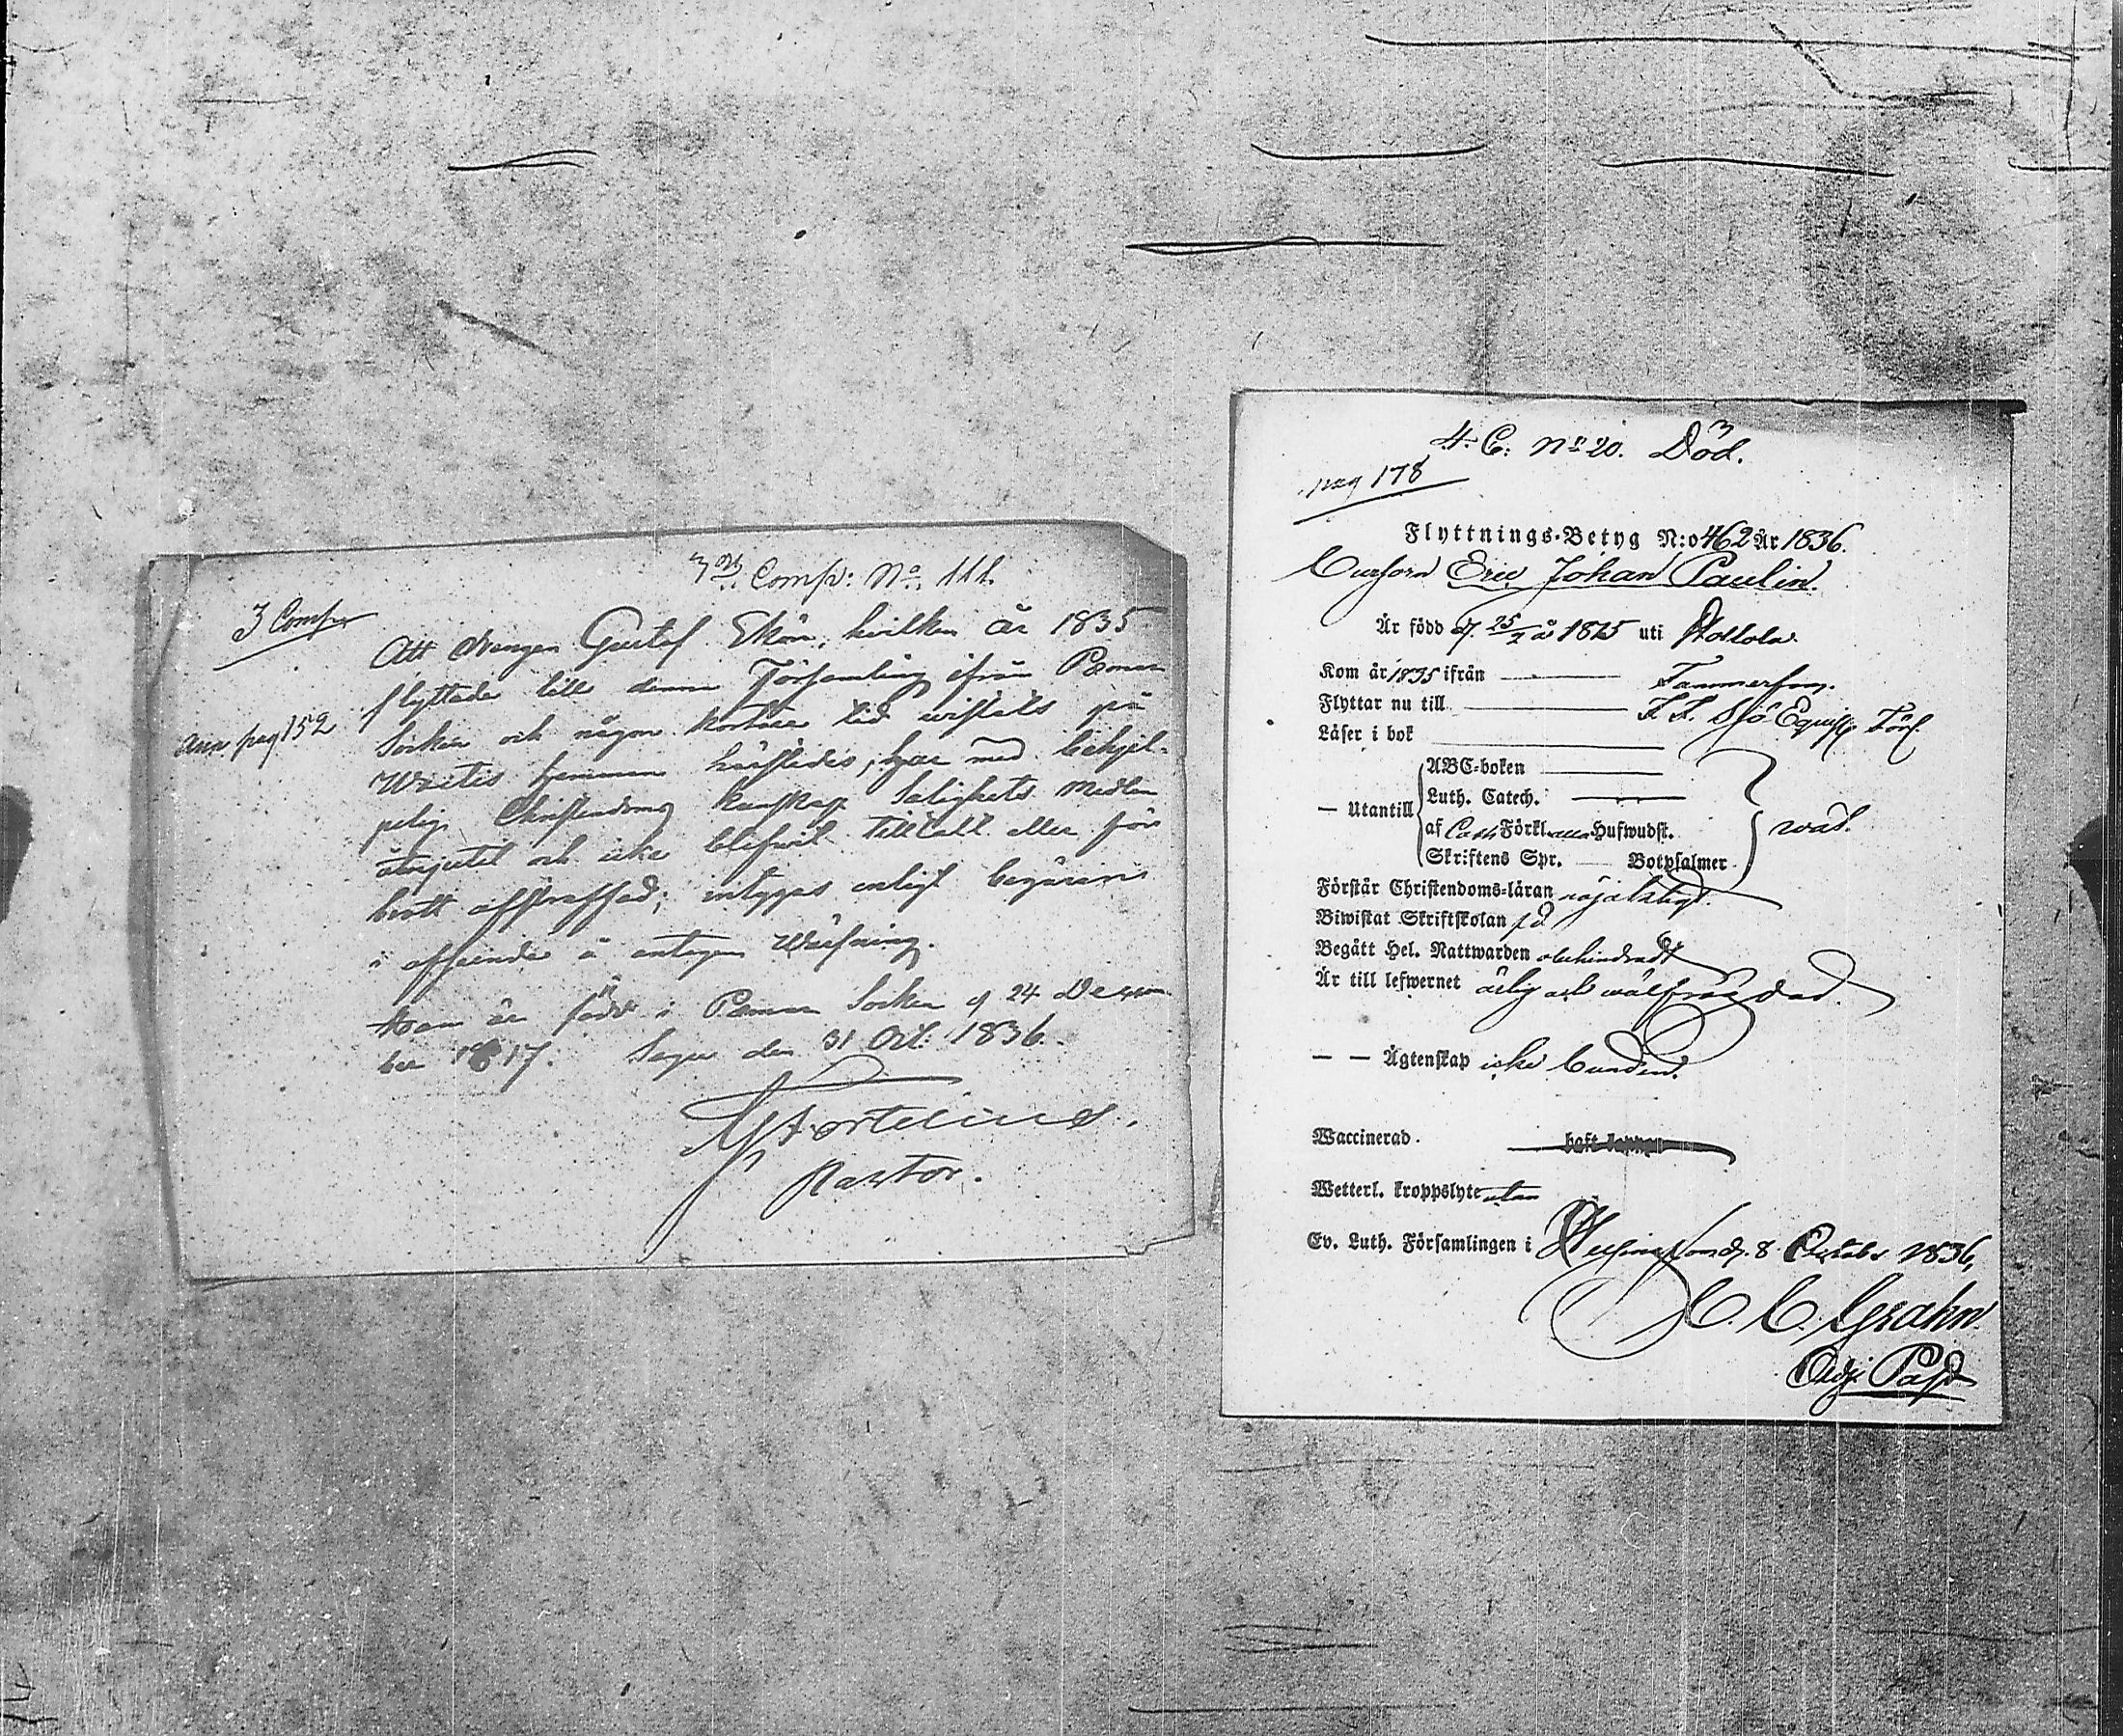 3die Comp: No. 111.
3 Comp
Att Drengen Gustaf Ekön, hvilken år 1835
flyttade till denna Församling ifrån Pemar
ann. pag 152
Socken och någon kortare tid vistats på
hemman härstädes, har med behjel-
pelig Christendoms kunskap Salighets medlen
åtnjutit och icke blifvit tilltalt eller för
brott afstraffad; intygas enligt begäran
i afseende å antagen Värfning.
Han är född i Pemar Socken d 24 Decem
ber 1817. Sagu den 31 Oct: 1836.
Pastor.
4. C: No 20. Död.
pag 178
Flyttnings-Betyg N:o 462 År 1836.
Eric Johan Paulin.
Är född d. 25/2 år 1815 uti Hollola
Kom år 1835 ifrån Tammerfors.
Flyttar nu till F. F. Sjö Equip. Förs.
Läser i bok
ABC-boken
Luth. Catech.
— Utantill väl.
af Förkl. Hufwudst.
Skriftens Spr. Botpsalmer
Förstår Christendoms-läran nöjaktligt.
Biwistat Skriftskolan
Begått Hel. Nattwarden obehindradt
Är till lefwernet ärlig och wälfrägdad.
— — Ägtenskap icke bunden.
Waccinerad. haft koppor
Wetterl. kroppslyte utan
Ev. Luth. Församlingen i Helsingfors d. 8 October 1836,
C. C. Grahn
Adj: Past